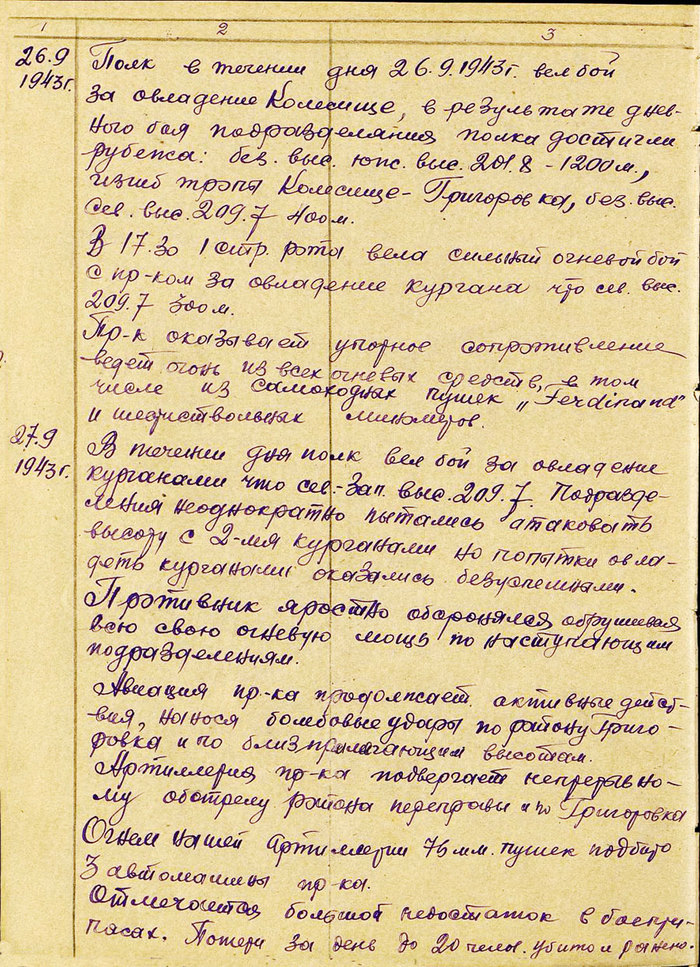 1 2 3
26.9 1943г. Полк в течении дня 26.9.1943г. вел бой
за овладение Колесище, в результате днев-
ного боя подразделения полка достигли
рубежа: без. выс. юж. выс. 201.8 - 1200м.,
изгиб тропы Колесище-Григоровка, без. выс.
сев. выс. 209.7 400м.
В 17.30 1 стр. рота вела сильный огневой бой
с пр-ком за овладение кургана что сев. выс.
209.7 300м.
Пр-к оказывает упорное сопротивление
ведет огонь из всех огневых средств, в том
числе из самоходных пушек „Ferdinand"
и шестиствольных минометов.
27.9 1943г. В течении дня полк вел бой за овладение
курганами что сев.-зап. выс. 209.7. Подразде-
ления неоднократно пытались атаковать
высоту с 2-мя курганами но попытки овла-
деть курганами оказались безуспешными.
Противник яростно оборонялся обрушивая
всю свою огневую мощь по наступающим
подразделениям.
Авиация пр-ка продолжает активные дейст-
вия, нанося бомбовые удары по району Григо-
ровка и по близприлегающим высотам.
Артиллерия пр-ка подвергает непрерывно-
му обстрелу района переправы и по Григоровка
Огнем нашей артиллерии 76 мм. пушек подбито
3 автомашины пр-ка.
Отмечается большой недостаток в боепри-
пасах. Потери за день до 20 челов. убито и ранено.